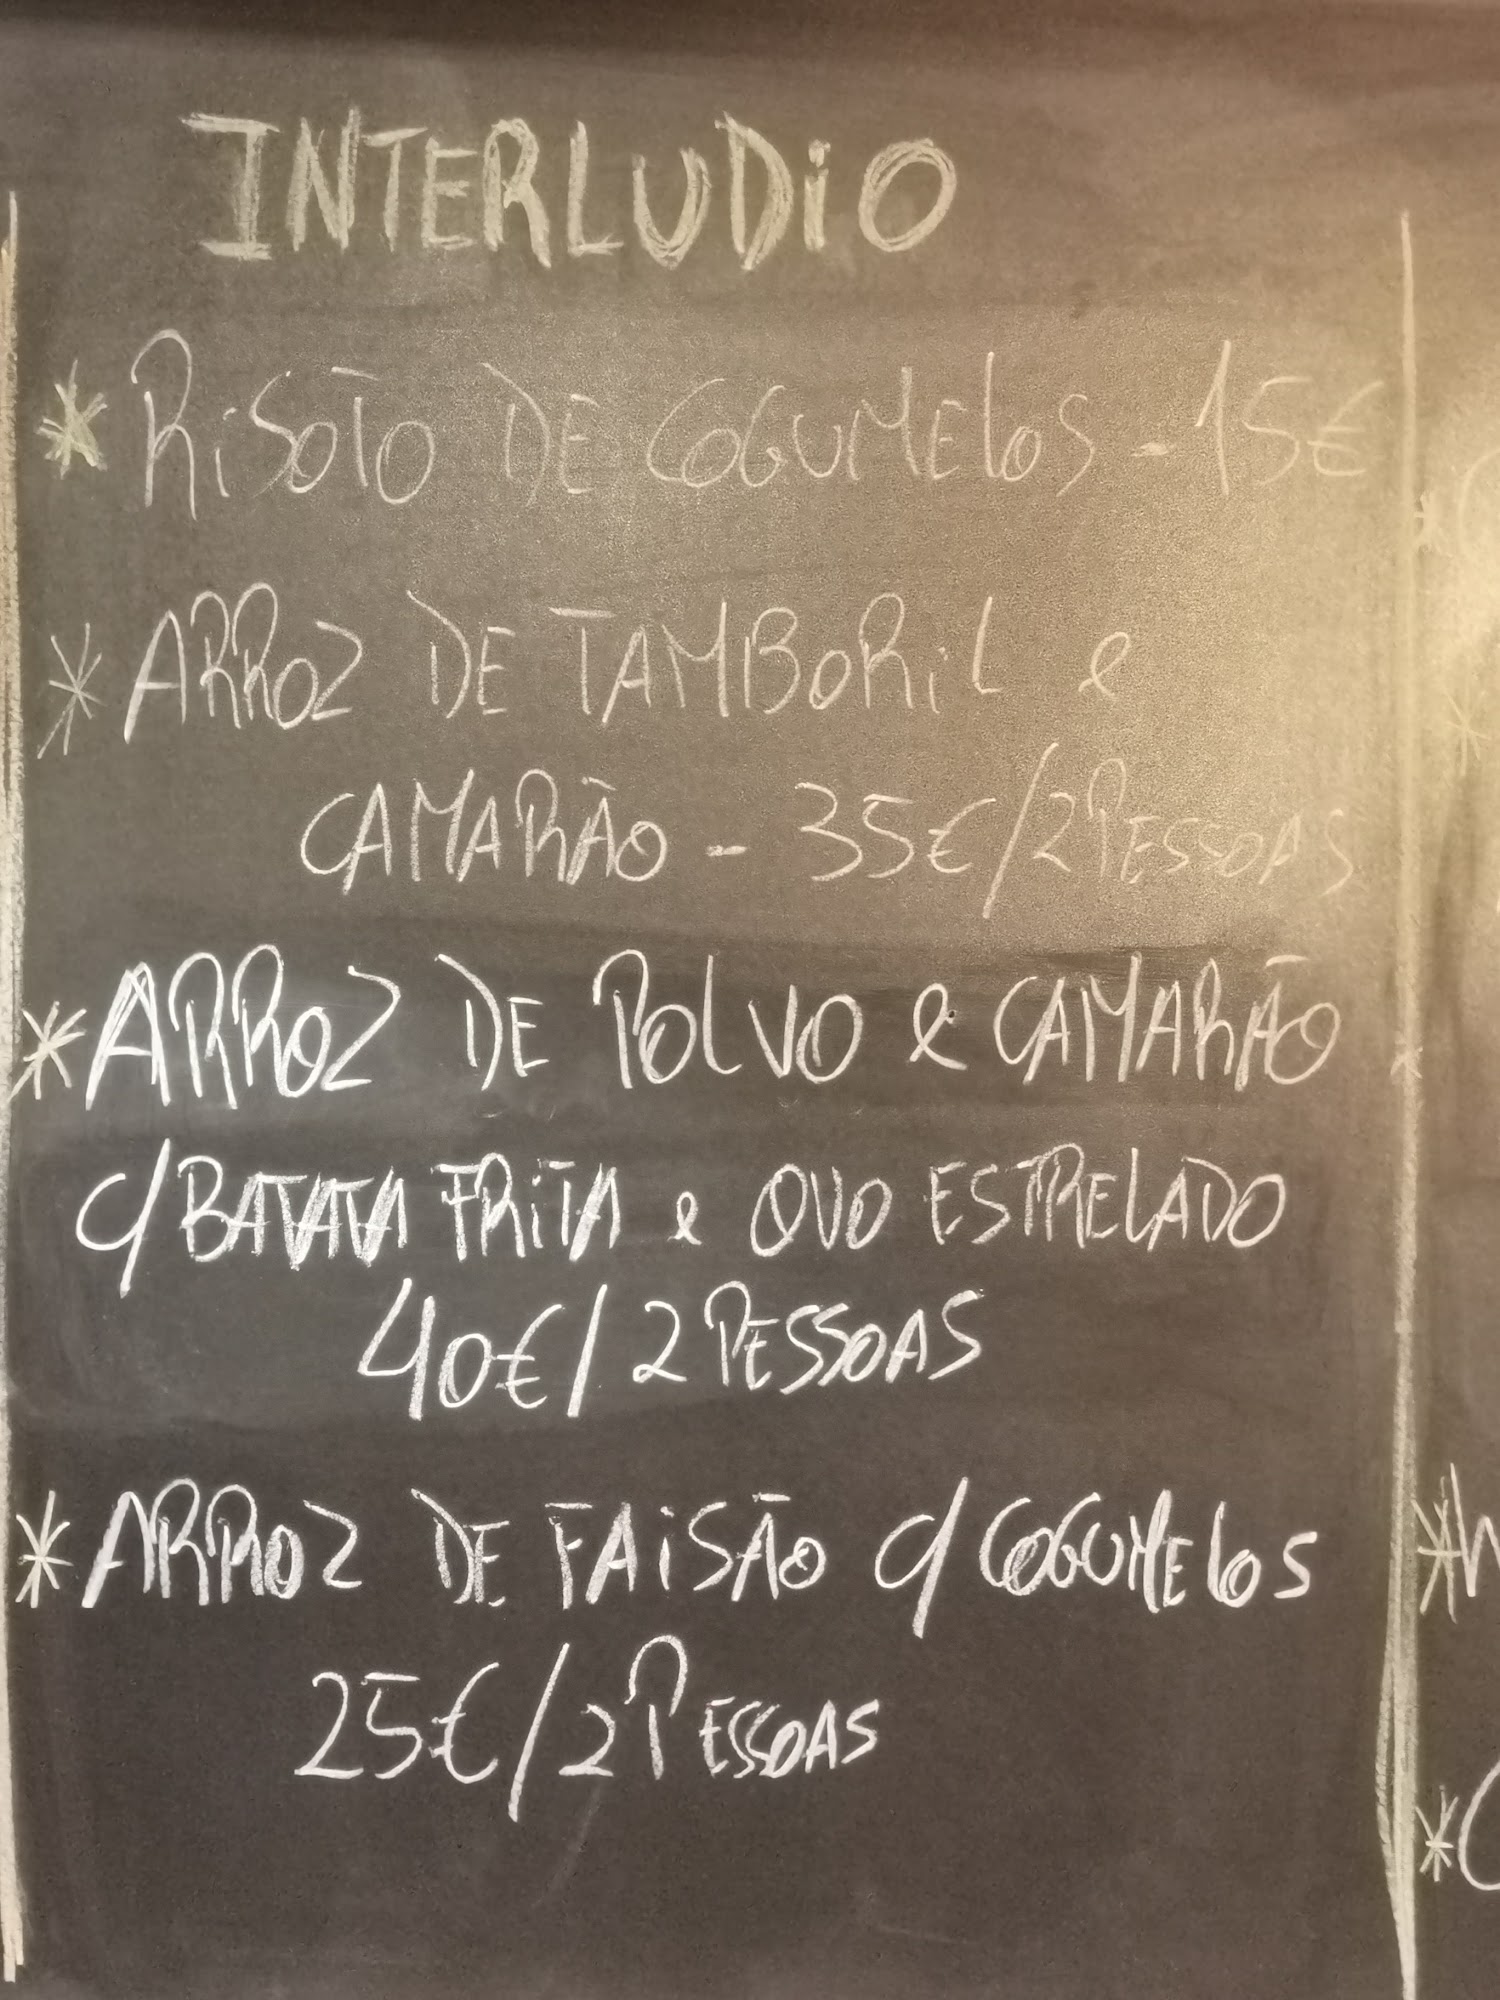 INTERLUDIO
* RISOTO DE COGUMELOS - 15€
* ARROZ DE TAMBORIL &
CAMARÃO - 35€/2 PESSOAS
* ARROZ DE POLVO & CAMARÃO
C/ BATATA FRITA & OVO ESTRELADO
40€/2 PESSOAS
* ARROZ DE FAISÃO C/ COGUMELOS
25€/2 PESSOAS